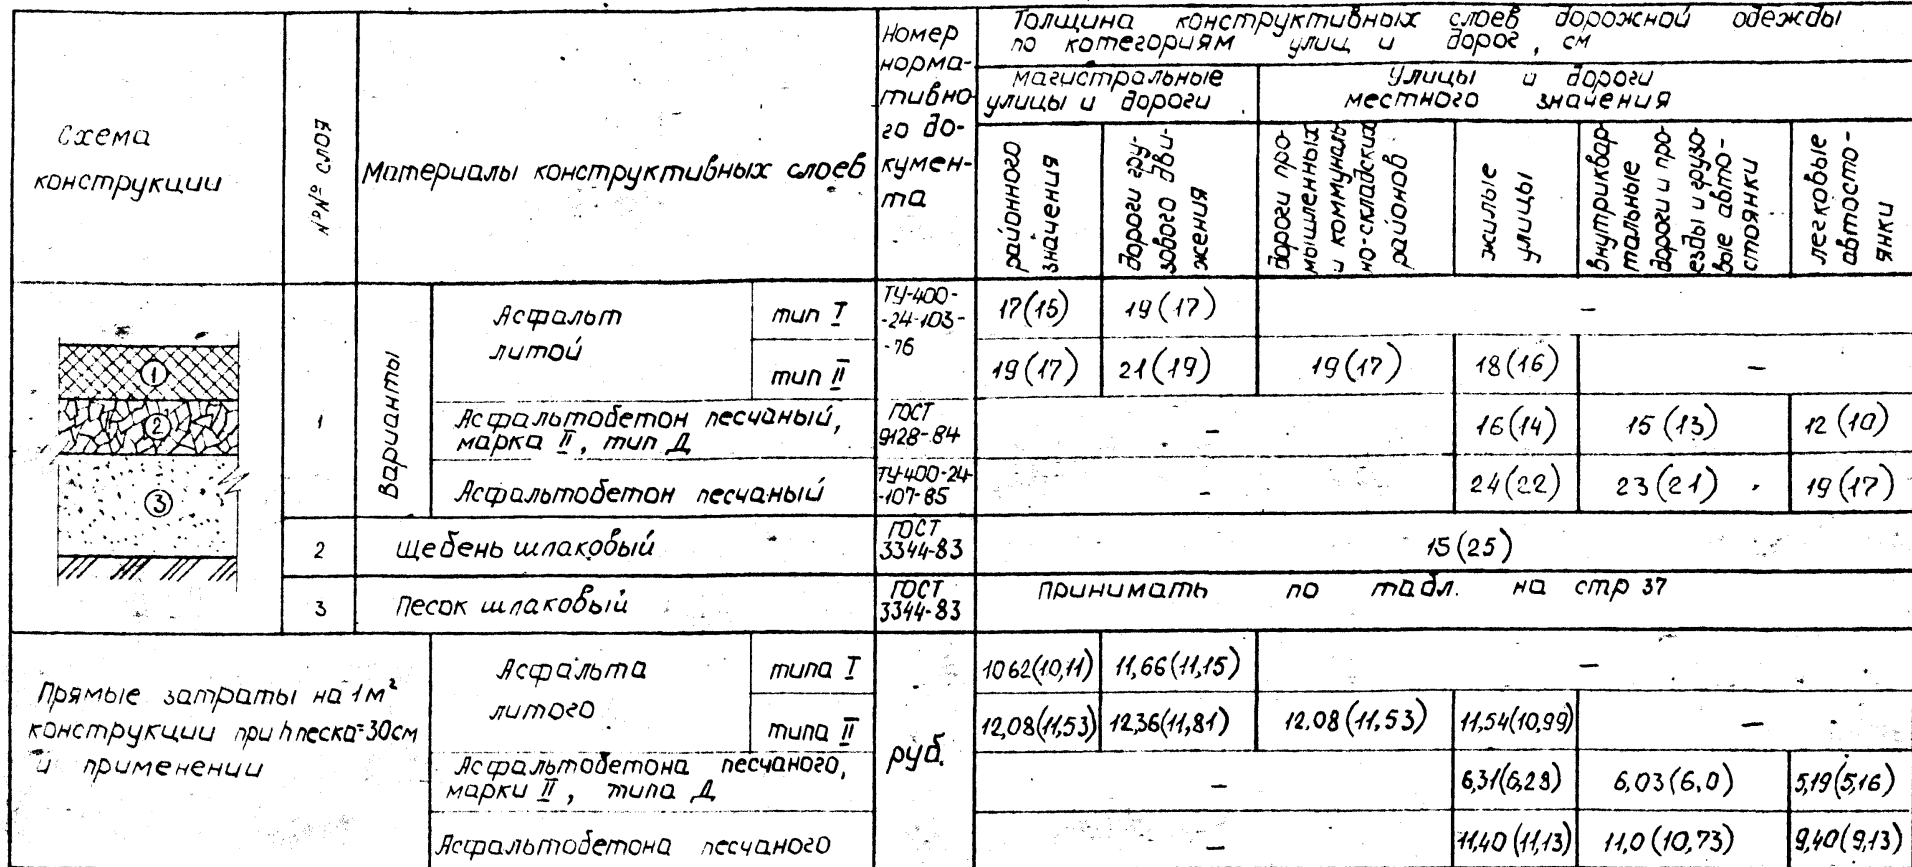 Схема
конструкции
№№ слоя
Материалы конструктивных слоев
Номер
норма-
тивно
го до-
кумен-
та
Толщина конструктивных слоев дорожной одежды
по категориям улиц и дорог, см
магистральные
улицы и дороги
Улицы и дороги
местного значения
районного
значения
дороги гру-
зового дви-
жения
дороги про-
мышленных
и коммуналь
но-складских
районов
жилые
улицы
внутриквар-
тальные
дороги и про-
езды и грузо-
вые авто-
стоянки
легковые
автосто-
янки
1
2
3
1
Варианты
Асфальт
литой
тип I
ТУ-400-
-24-103-
-76
17(15)
19(17)
–
тип II
19(17)
21(19)
19(17)
18(16)
–
Асфальтобетон песчаный,
марка II, тип Д
ГОСТ
9128-84
–
16(14)
15(13)
12(10)
Асфальтобетон песчаный
ТУ-400-24-
-107-85
–
24(22)
23(21)
19(17)
2
Щебень шлаковый
ГОСТ
3344-83
15(25)
3
Песок шлаковый
ГОСТ
3344-83
принимать по табл. на стр 37
Прямые затраты на 1м²
конструкции при h песка=30см
и применении
Асфальта
литого
типа I
руб.
1062(10,11)
11,66(11,15)
–
типа II
12,08(11,53)
12,36(11,81)
12.08(11,53)
11,54(10,99)
–
Асфальтобетона песчаного,
марки II, типа Д
–
6,31(6,28)
6,03(6,0)
5,19(5,16)
Асфальтобетона песчаного
–
11,40(11,13)
11,0(10,73)
9,40(9,13)